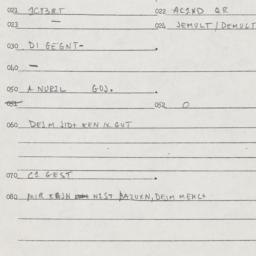 021 1CT3RT 022 ACIND QR
023 — 024 JEMULT / DEMULT
030 DI GEGNT-
040 —
050 A NURIL GOJ.
051 052 O
060 DEIM JIDT KEN IK GUT
070 CI GEST
080 MIR KEIN NIST BAZUKN, DEIM MEHL